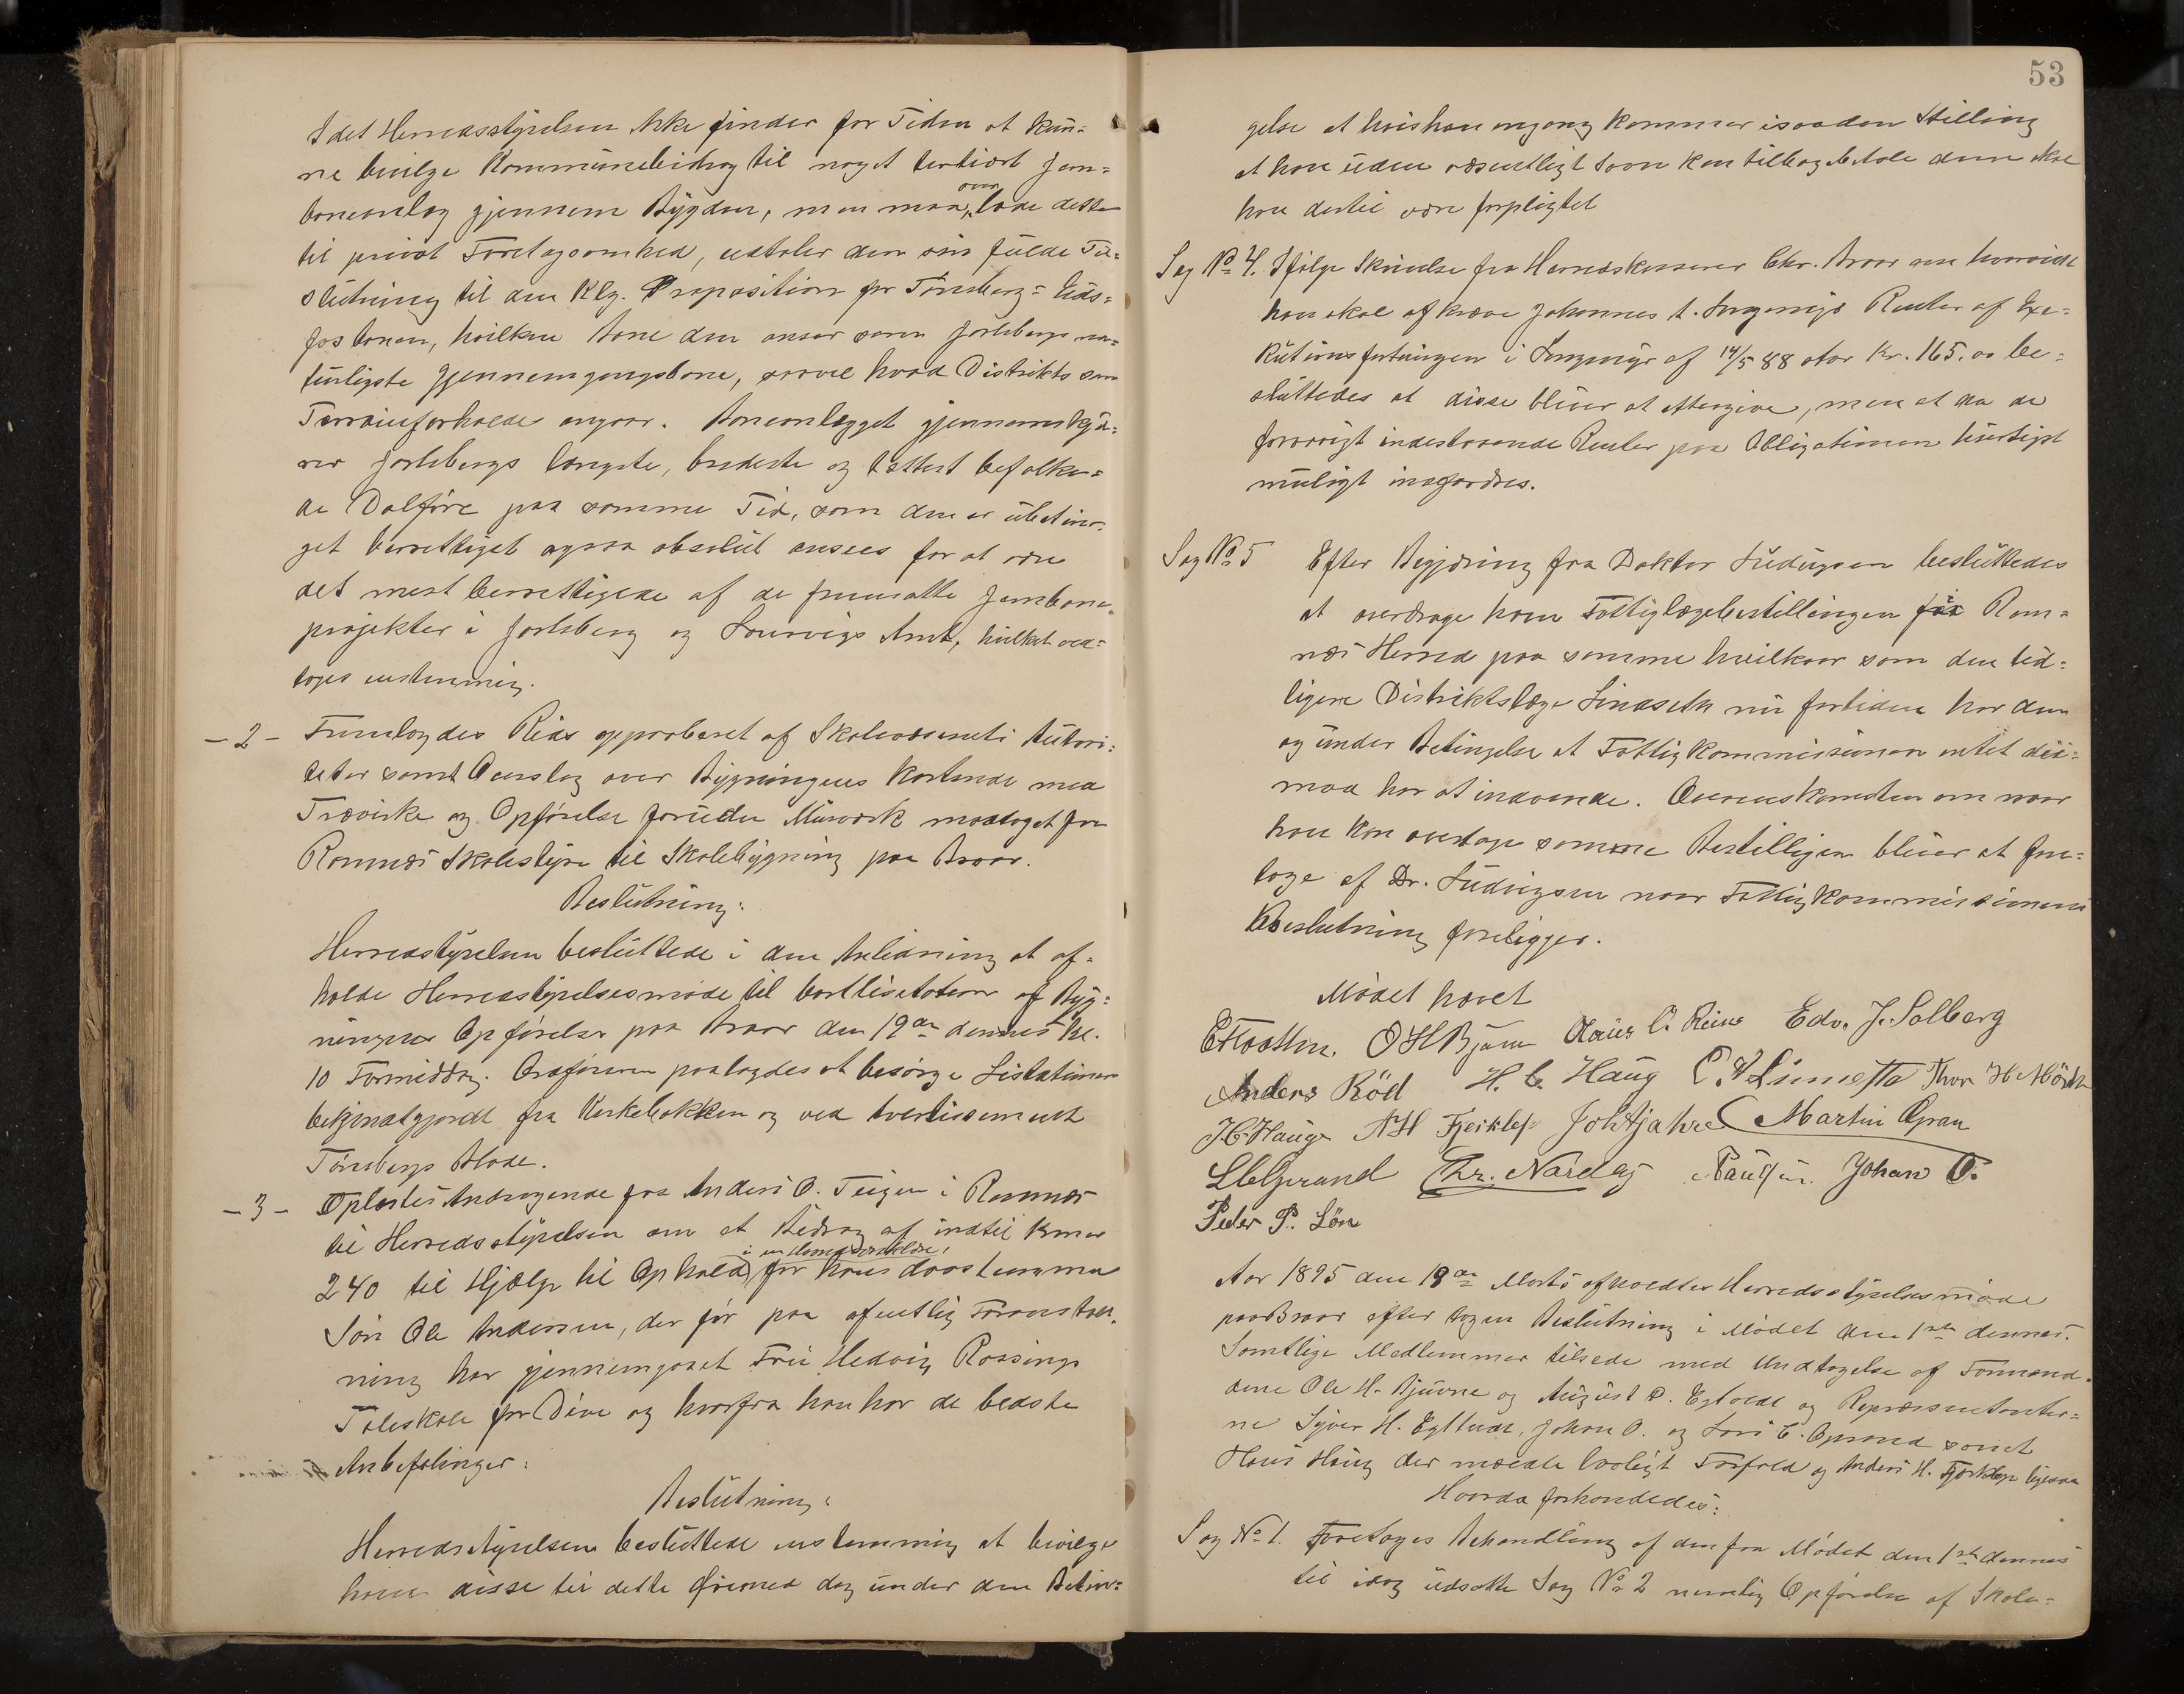 Idet Herredsstyrelsen ikke finder for Tiden at kun=
ne bevilge Kommunebidrag til noget tertiært Jern=
baneanlæg gjennem Bygden, men maa over lade dette
til privat Foretagsomhed, udtaler den sin fulde Til=
slutning til den Klg. Proposition for Tønsberg= Eids=
fos banen, hvilken Bane den anser som Jarlsbergs na=
turligste Gjennemgangsbane, saavel hvad Distrikts som
Terrainforholde angaar. Baneanlægget gjennemskjæ=
rer Jarlsbergs længste, bredeste og tættest befolke=
de Dalføre paa samme Tid, som den er ubetin=
get berettiget ogsaa absolut ansees for at være
det mest berettigede af de fremsatte Jernbane=
projekter i Jarlsberg og Laurvigs Amt, hvilket ved=
toges enstemmig.
- 2 - Fremlagdes Rids approberet af Skolevæsenets Autori=
teter samt Overslag over Bygningens Kostende med
Trævirke og Opførelse foruden Murværk modtaget fra
Ramnæs Skolestyre til Skolebygning paa Braar.
Beslutning:
Herredstyrelsen besluttede i den Anledning at af=
holde Herredstyrelsesmøde til bortlisitation af Byg=
ningens Opførelse paa Braar den 19de dennes Kl.
10 Formiddag. Ordføreren paalagdes at besørge Lisitationen
bekjendtgjordt fra Kirkebakken og ved Avertissement
Tønsbergs Blade.
- 3 - Oplæstes Andragende fra Anders O. Teigen i Ramnæs
til Herredsstyrelsen om et Bidrag af indtil Kroner
i en Haandværkslære,
240 til Hjælp til Ophold for hans døvstumme
Søn Ole Andersen, der før paa offentlig Foranstalt=
ning har gjennemgaaet Fru Hedvig Rossings
Taleskole for Døve og hvorfra han har de bedste
Anbefalinger:
Beslutning:
Herredsstyrelsen besluttede enstemmig at bevilge
ham disse til dette Øiemed dog under den Betin=
53
gelse at hvis han engang kommer i saadan Stilling
at han uden væsentligt Savn kan tilbagebetale dem skal
han dertil være forpligtet
Sag No 4. Ifølge Skrivelse fra Herredskasserer Chr. Braar om hvorvidt
han skal afkræve Johannes t. Langmyr Renter af Exe=
kutionsforretningen i Langmyr af 14/5 88 stor Kr. 165.00 be=
sluttedes at disse bliver at eftergive, men at da de
forøvrigt indestaaende Renter paa Obligationen hurtigst
muligt inddrives.
Sag No 5 Efter Begjæring fra Doktor Ludvigsen besluttedes
at overdrage ham Fattiglægebestillingen for Ram=
næs Herred paa samme hvilkaar som den tid=
ligere Distriktslæge Lindseth nu fortiden har den
og under Betingelse at Fattigkommissionen intet der=
mod har at indvende. Overenskomsten om naar
han kan overtage samme Bestilligen bliver at fore=
tage af Dr. Ludvigsen naar Fattigkommissionens
Beslutning foreligger.
Mødet hævet
O H Bjune Edv. J. Solberg
Anders Röd H. C. Haug Thor H Mörk
H. Hauge A H Fjeiklep Martin Gran
Chr. Nareløg Paulsen. Johan O.
Peder P. Løn
Aar 1895 den 19de Marts afholdtes Herredsstyrelsesmøde
paa Braar efter tagen Beslutning i Mødet den 1ste dennes.
Samtlige Medlemmer tilstede med Undtagelse af Formænd=
dene Ole H. Bjuvne og August O. Eftedt og Repræsentanter=
ne Syver H. Eftedt, Johan O. og Lars C. Gprand samt
Hans Haug der meldte lovligt Forfald og Anders H. Fjærklep ligesaa
Hvorda forhandledes:
Sag No 1. Foretoges Behandling af den fra Mødet den 1ste dennes
til idag udsatte Sag No 2 nemlig Opførelse af Skole=